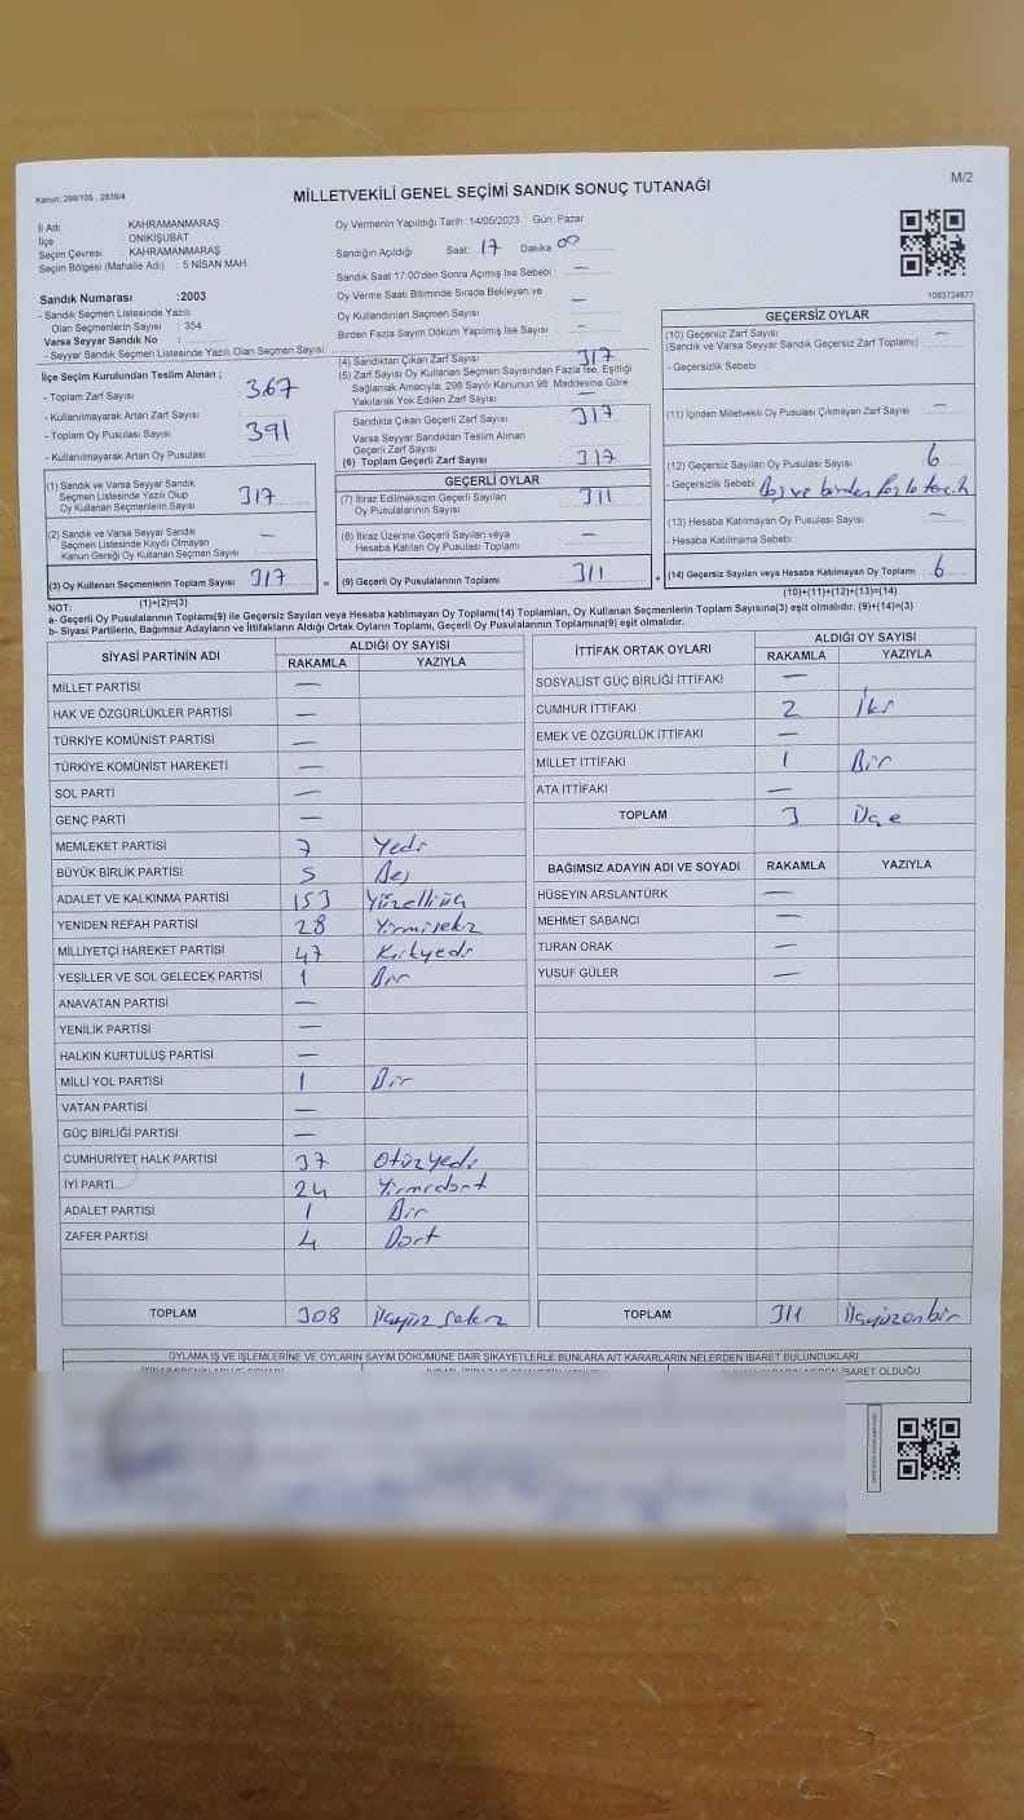 Kanun: 298/105 , 2839/4
MİLLETVEKİLİ GENEL SEÇİMİ SANDIK SONUÇ TUTANAĞI
M/2
İl Adı KAHRAMANMARAŞ
İlçe ONİKİŞUBAT
Seçim Çevresi : KAHRAMANMARAŞ
Seçim Bölgesi (Mahalle Adı) : 5 NİSAN MAH
Sandık Numarası :2003
- Sandık Seçmen Listesinde Yazılı
Olan Seçmenlerin Sayısı : 354
Varsa Seyyar Sandık No :
- Seyyar Sandık Seçmen Listesinde Yazılı Olan Seçmen Sayısı
İlçe Seçim Kurulundan Teslim Alınan ;
- Toplam Zarf Sayısı 367
- Kullanılmayarak Artan Zarf Sayısı
- Toplam Oy Pusulası Sayısı 391
- Kullanılmayarak Artan Oy Pusulası
(1) Sandık ve Varsa Seyyar Sandık
Seçmen Listesinde Yazılı Olup
Oy Kullanan Seçmenlerin Sayısı 317
(2) Sandık ve Varsa Seyyar Sandık
Seçmen Listesinde Kaydı Olmayan
Kanun Gereği Oy Kullanan Seçmen Sayısı —
(3) Oy Kullanan Seçmenlerin Toplam Sayısı 317
(1)+(2)=(3)
Oy Vermenin Yapıldığı Tarih :14/05/2023 Gün: Pazar
Sandığın Açıldığı Saat: 17 Dakika 00
Sandık Saat 17:00'den Sonra Açılmış İse Sebebi : —
Oy Verme Saati Bitiminde Sırada Bekleyen ve
Oy Kullandırılan Seçmen Sayısı —
Birden Fazla Sayım Döküm Yapılmış İse Sayısı —
(4) Sandıktan Çıkan Zarf Sayısı 317
(5) Zarf Sayısı Oy Kullanan Seçmen Sayısından Fazla İse, Eşitliği
Sağlamak Amacıyla, 298 Sayılı Kanunun 98. Maddesine Göre
Yakılarak Yok Edilen Zarf Sayısı —
Sandıkta Çıkan Geçerli Zarf Sayısı 317
Varsa Seyyar Sandıktan Teslim Alınan
Geçerli Zarf Sayısı
(6) Toplam Geçerli Zarf Sayısı 317
GEÇERLİ OYLAR
(7) İtiraz Edilmeksizin Geçerli Sayılan
Oy Pusulalarının Sayısı 311
(8) İtiraz Üzerine Geçerli Sayılan veya
Hesaba Katılan Oy Pusulası Toplamı —
= (9) Geçerli Oy Pusulalarının Toplamı 311
1083734677
GEÇERSİZ OYLAR
(10) Geçersiz Zarf Sayısı —
(Sandık ve Varsa Seyyar Sandık Geçersiz Zarf Toplamı)
- Geçersizlik Sebebi
(11) İçinden Milletvekili Oy Pusulası Çıkmayan Zarf Sayısı —
(12) Geçersiz Sayılan Oy Pusulası Sayısı 6
- Geçersizlik Sebebi Boş ve birden fazla tercih
(13) Hesaba Katılmayan Oy Pusulası Sayısı —
- Hesaba Katılmama Sebebi
+ (14) Geçersiz Sayılan veya Hesaba Katılmayan Oy Toplamı 6
(10)+(11)+(12)+(13)=(14)
NOT:
a- Geçerli Oy Pusulalarının Toplamı(9) ile Geçersiz Sayılan veya Hesaba katılmayan Oy Toplamı(14) Toplamları, Oy Kullanan Seçmenlerin Toplam Sayısına(3) eşit olmalıdır. (9)+(14)=(3)
b- Siyasi Partilerin, Bağımsız Adayların ve İttifakların Aldığı Ortak Oyların Toplamı, Geçerli Oy Pusulalarının Toplamına(9) eşit olmalıdır.
SİYASİ PARTİNİN ADI ALDIĞI OY SAYISI
RAKAMLA YAZIYLA
MİLLET PARTİSİ —
HAK VE ÖZGÜRLÜKLER PARTİSİ —
TÜRKİYE KOMÜNİST PARTİSİ —
TÜRKİYE KOMÜNİST HAREKETİ —
SOL PARTİ —
GENÇ PARTİ —
MEMLEKET PARTİSİ 7 Yedi
BÜYÜK BİRLİK PARTİSİ 5 Beş
ADALET VE KALKINMA PARTİSİ 153 Yüzelliüç
YENİDEN REFAH PARTİSİ 28 Yirmisekiz
MİLLİYETÇİ HAREKET PARTİSİ 47 Kırkyedi
YEŞİLLER VE SOL GELECEK PARTİSİ 1 Bir
ANAVATAN PARTİSİ —
YENİLİK PARTİSİ —
HALKIN KURTULUŞ PARTİSİ —
MİLLİ YOL PARTİSİ 1 Bir
VATAN PARTİSİ —
GÜÇ BİRLİĞİ PARTİSİ —
CUMHURİYET HALK PARTİSİ 37 Otuzyedi
İYİ PARTİ 24 Yirmidört
ADALET PARTİSİ 1 Bir
ZAFER PARTİSİ 4 Dört
TOPLAM 308 Üçyüz sekiz
İTTİFAK ORTAK OYLARI ALDIĞI OY SAYISI
RAKAMLA YAZIYLA
SOSYALİST GÜÇ BİRLİĞİ İTTİFAKI —
CUMHUR İTTİFAKI 2 İki
EMEK VE ÖZGÜRLÜK İTTİFAKI —
MİLLET İTTİFAKI 1 Bir
ATA İTTİFAKI —
TOPLAM 3 Üç
BAĞIMSIZ ADAYIN ADI VE SOYADI RAKAMLA YAZIYLA
HÜSEYİN ARSLANTÜRK —
MEHMET SABANCI —
TURAN ORAK —
YUSUF GÜLER —
TOPLAM 311 Üçyüzonbir
OYLAMA İŞ VE İŞLEMLERİNE VE OYLARIN SAYIM DÖKÜMÜNE DAİR ŞİKAYETLERLE BUNLARA AİT KARARLARIN NELERDEN İBARET BULUNDUKLARI
İBARET OLDUĞU